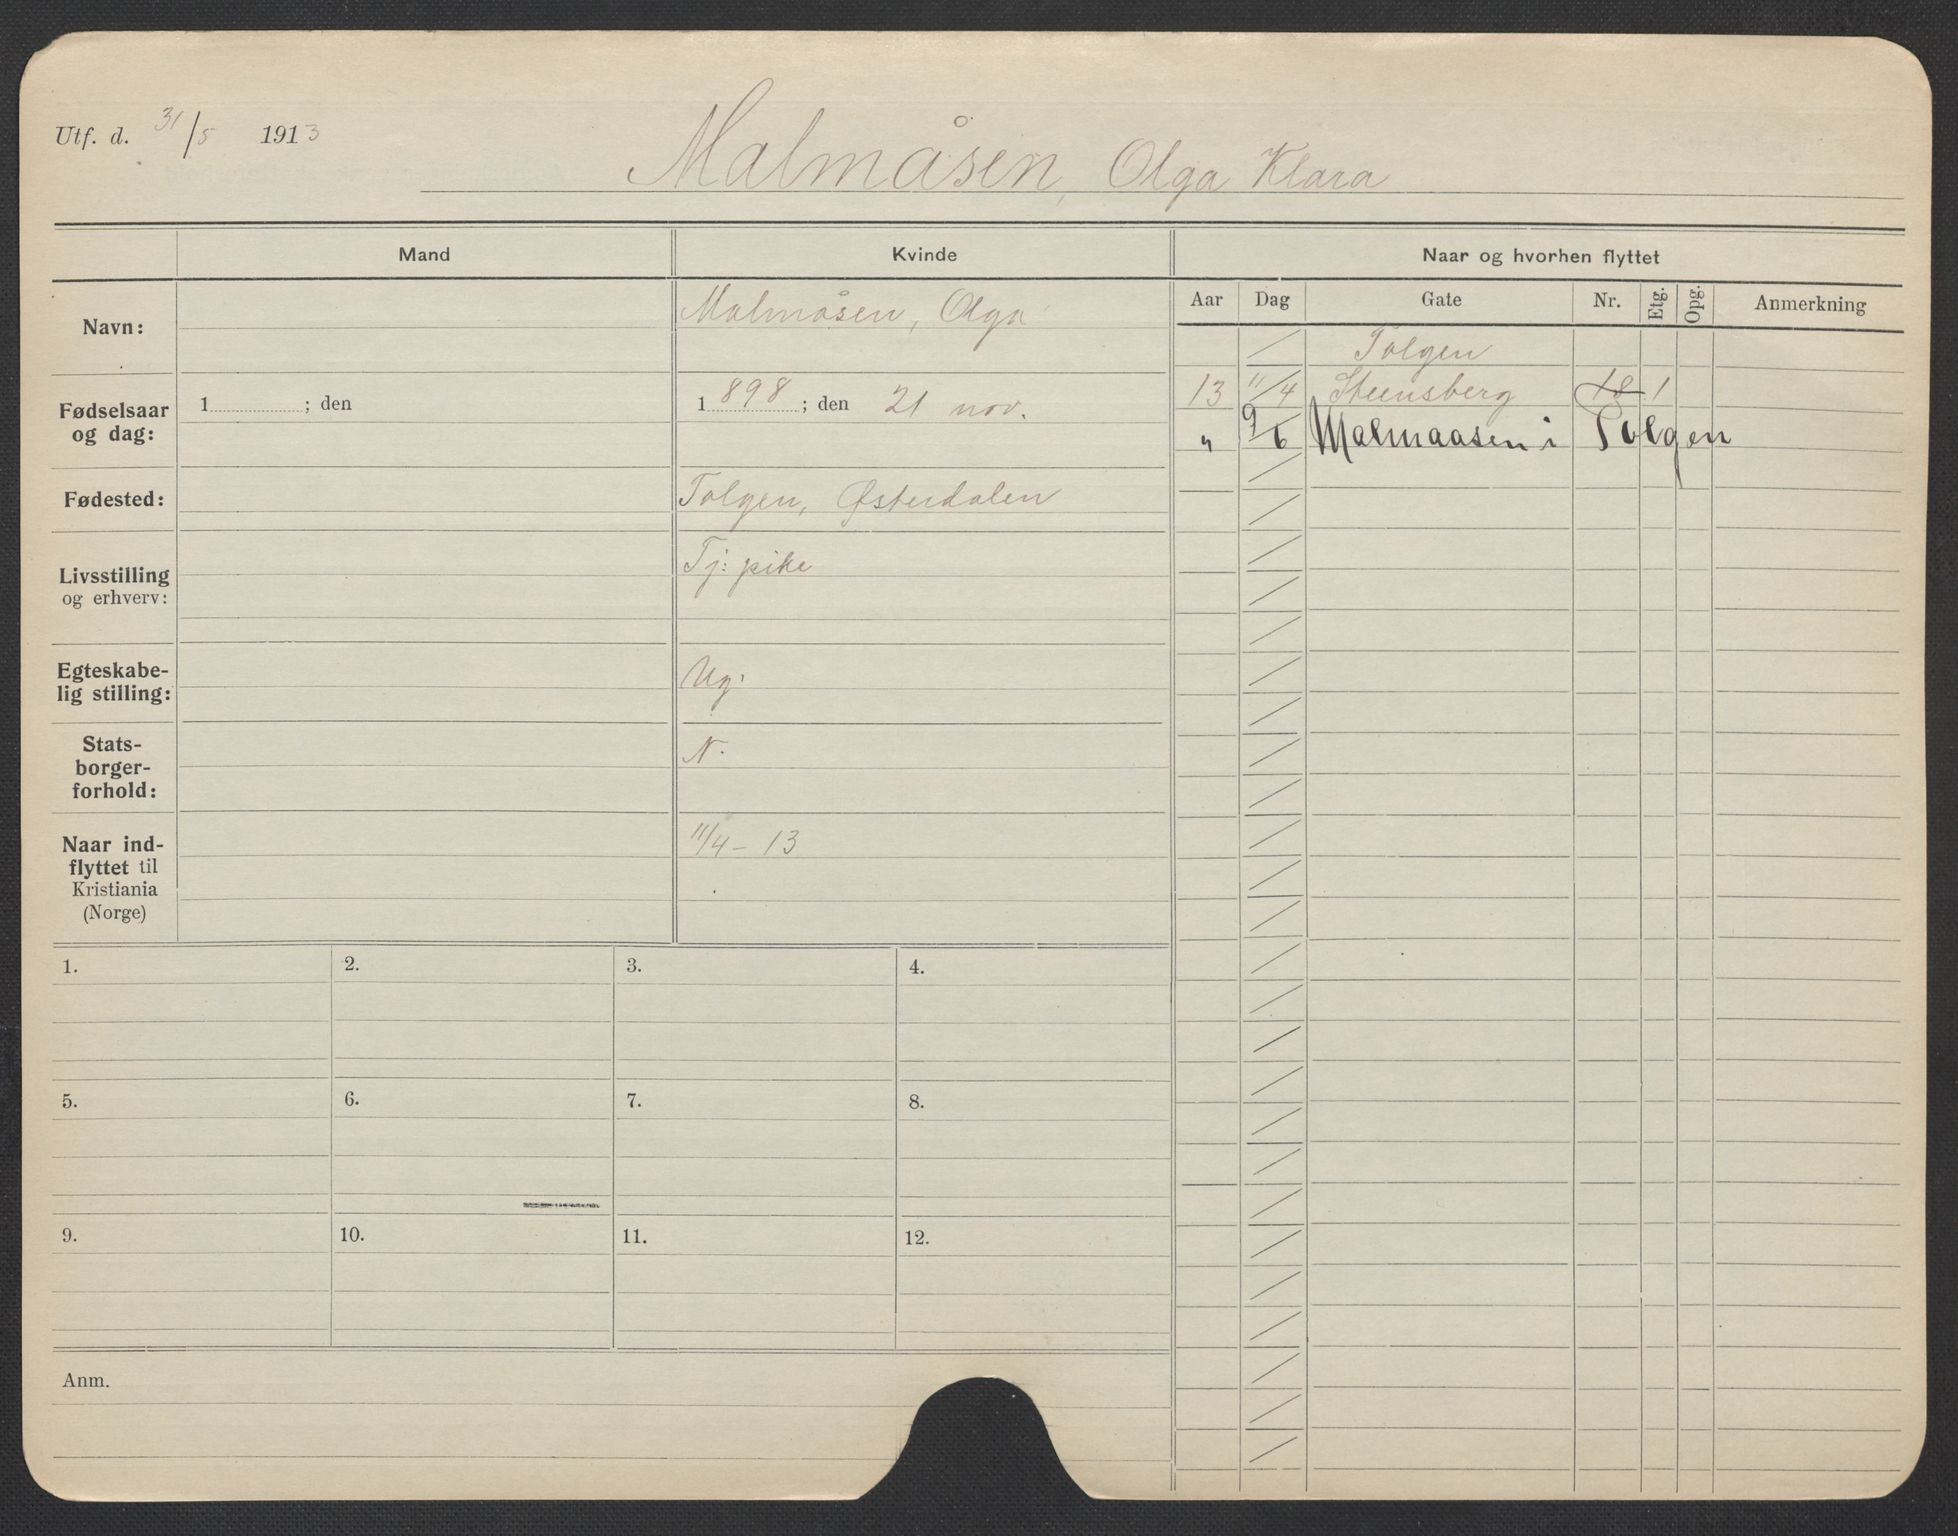 Utf. d. 31/5 1913
Malmåsen, Olga Klara
Mand
Kvinde
Naar og hvorhen flyttet
Navn:
Malmåsen, Olga
Fødselsaar
og dag:
1 ; den
1 898 ; den 21 nov.
Fødested:
Tolgen, Østerdalen
Livsstilling
og erhverv:
Tj: pike
Egteskabe-
lig stilling:
Ug.
Stats-
borger-
forhold:
N.
Naar ind-
flyttet til
Kristiania
(Norge)
11/4 – 13
Aar Dag Gate Nr. Etg. Opg. Anmerkning
/ Tolgen
13 11/4 Steensberg 18 1
" 9/6 Malmaasen i Tolgen
1. 2. 3. 4.
5. 6. 7. 8.
9. 10. 11. 12.
Anm.